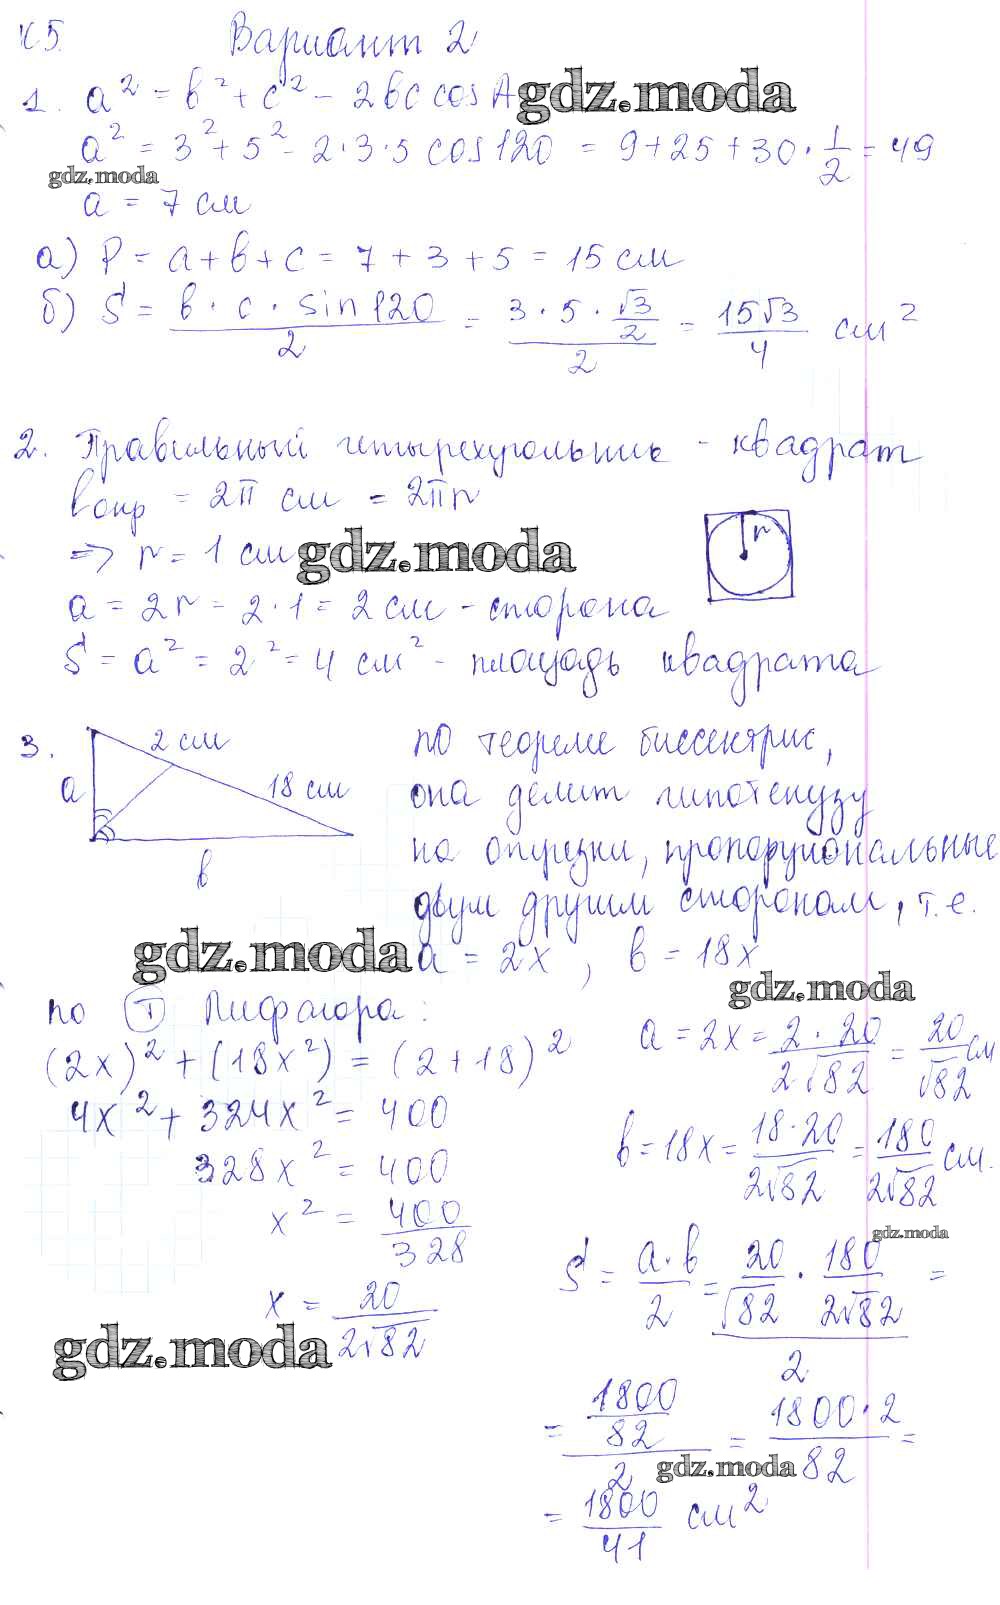 К5. Вариант 2
1. a² = b² + c² - 2bc cos A gdz.moda
a² = 3² + 5² - 2·3·5 cos 120 = 9 + 25 + 30 · 1/2 = 49
gdz.moda
a = 7 см
а) P = a + b + c = 7 + 3 + 5 = 15 см
б) S = b · c · sin 120 / 2 = 3 · 5 · √3/2 / 2 = 15√3/4 см²
2. Правильный четырехугольник - квадрат
lокр = 2π см = 2πr
=> r = 1 см gdz.moda
r
a = 2r = 2·1 = 2 см - сторона
S = a² = 2² = 4 см² - площадь квадрата
3.
2 см
18 см
a
b
по теореме биссектрис,
она делит гипотенузу
на отрезки, пропорциональные
двум другим сторонам, т.е.
gdz.moda a = 2x, b = 18x
gdz.moda
по Ⓣ Пифагора:
(2x)² + (18x²) = (2+18)²
4x² + 324x² = 400
328x² = 400
x² = 400/328
x = 20/2√82
gdz.moda
a = 2x = 2·20/2√82 = 20/√82 см
b = 18x = 18·20/2√82 = 180/2√82 см.
gdz.moda
S = a·b/2 = 20/√82 · 180/2√82 / 2 =
= 1800/82 / 2 = 1800·2/82 =
gdz.moda
= 1800/41 см²